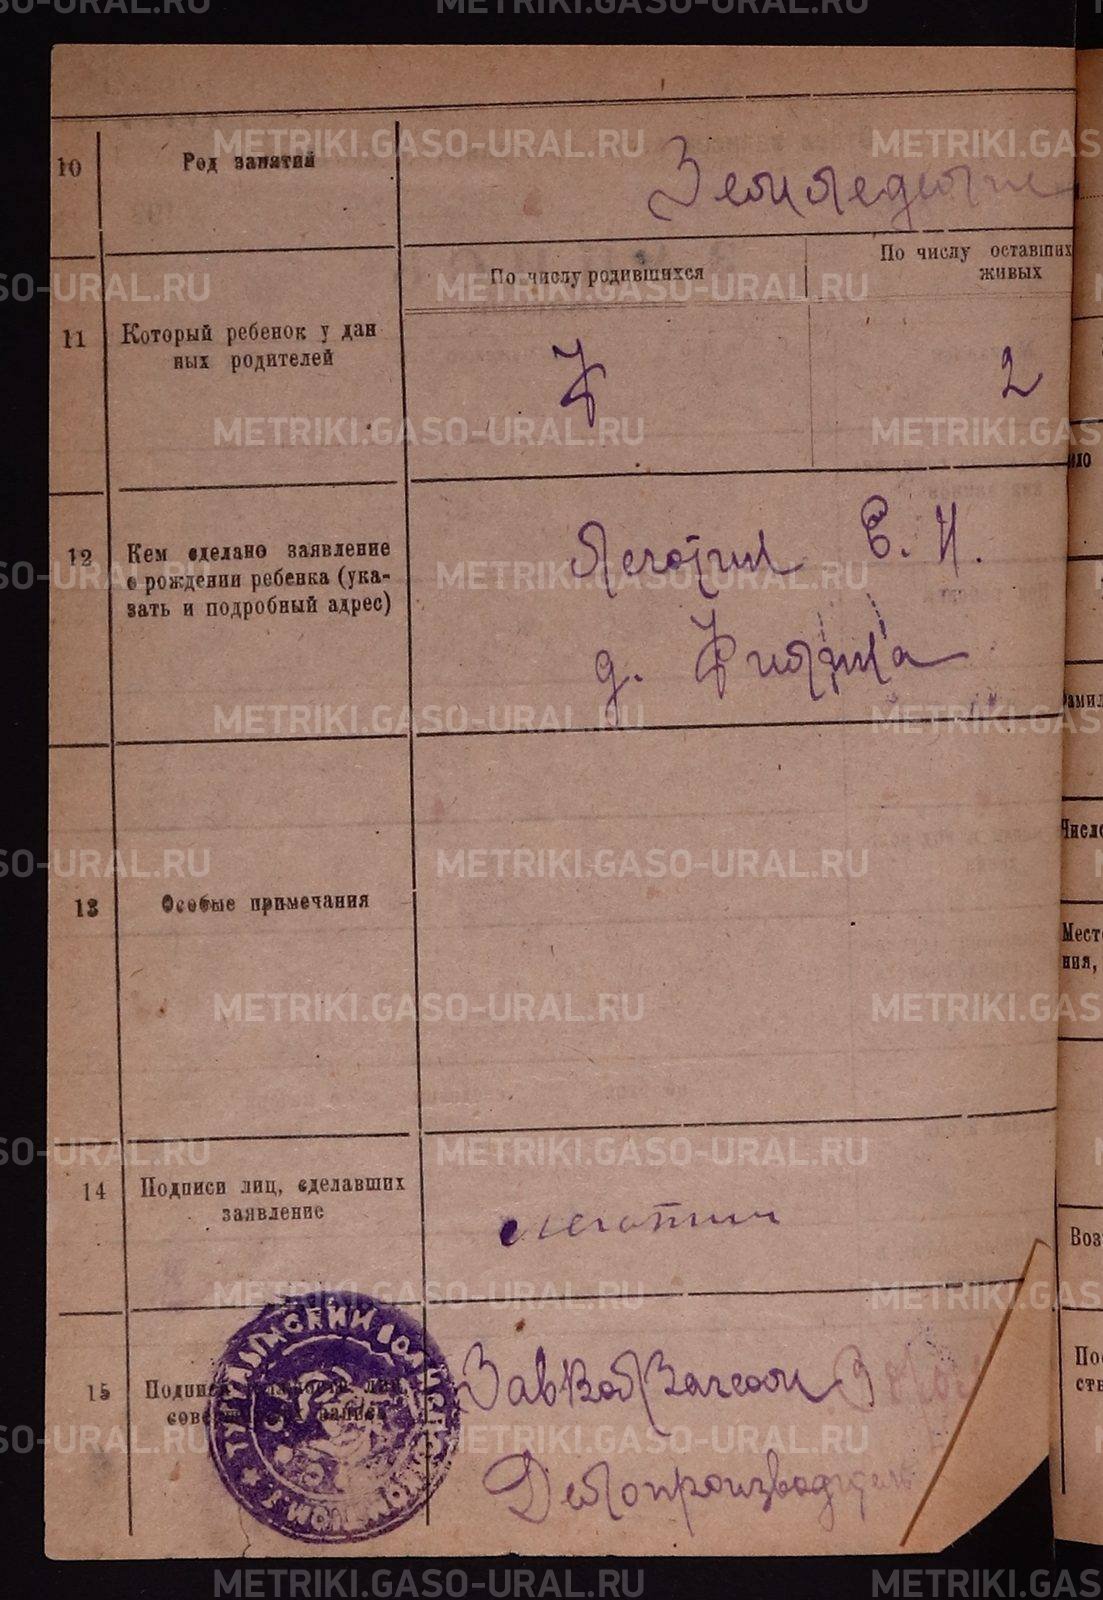 METRIKI.GASO-URAL.RU
10
Род занятий
Земледелие
По числу родившихся
По числу оставших
живых
11
Который ребенок у дан
ных родителей
7
2
12
Кем сделано заявление
о рождении ребенка (ука-
зать и подробный адрес)
Леготин Е. И.
д.
13
Особые примечания
14
Подписи лиц, сделавших
заявление
Леготин
15
Завволзагсом
Делопроизводитель
Число
Мест
ния,
Воз